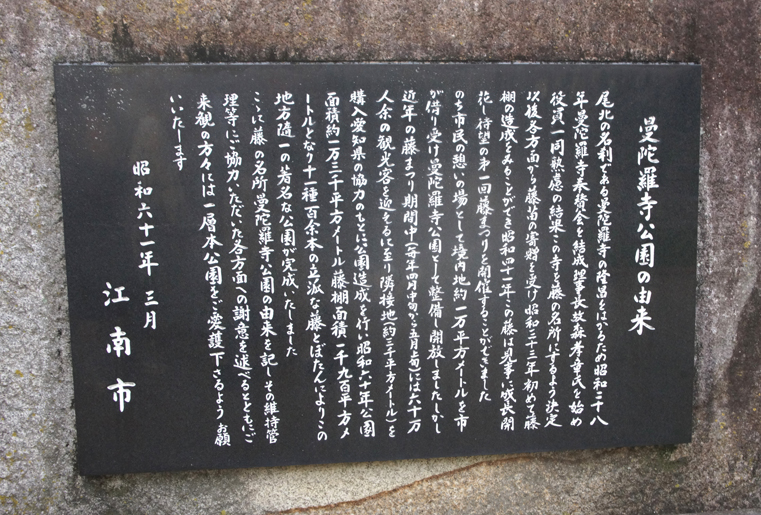 曼陀羅寺公園の由来
尾北の名刹である曼陀羅寺の隆昌をはかるため昭和二十八
年曼陀羅寺奉賛会を結成理事長故森孝重氏を始め
役員一同熟慮の結果この寺を藤の名所にするよう決定
以後各方面から藤苗の寄贈を受け昭和三十三年初めて藤
棚の造成をみることができ昭和四十一年この藤は見事に成長開
花し待望の第一回藤まつりを開催することができました
のち市民の憩いの場として境内地約一万平方メートルを市
が借り受け曼陀羅寺公園として整備し開放しましたしかし
近年の藤まつり期間中(毎年四月中旬から五月上旬)には六十万
人余の観光客を迎えるに至り隣接地(約三千平方メートル)を
購入愛知県の協力のもとに公園造成を行い昭和六十年公園
面積約一万三千平方メートル藤棚面積一千九百平方メ
ートルとなり十一種百余本の立派な藤とぼたんによりこの
地方随一の著名な公園が完成いたしました
ここに藤の名所曼陀羅寺公園の由来を記しその維持管
理等にご協力いただいた各方面への謝意を述べるとともにご
来観の方々には一層本公園をご愛護下さるようお願
いいたします
昭和六十一年三月
江南市